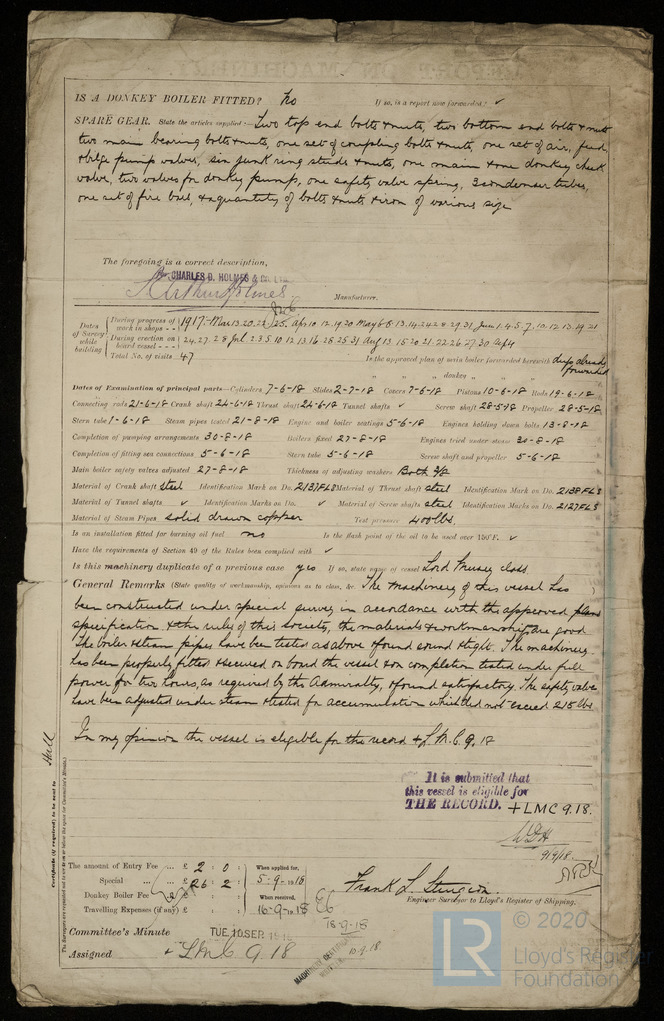 IS A DONKEY BOILER FITTED? No If so, is a report now forwarded? ✓
SPARE GEAR. State the articles supplied:— Two top end bolts & nuts, two bottom end bolts & nuts
two main bearing bolts & nuts, one set of coupling bolts & nuts, one set of air, feed
& bilge pump valves, six junk ring studs & nuts, one main & one donkey check
valve, two valves for donkey pump, one safety valve spring, 3 condenser tubes,
one set of fire bars, & a quantity of bolts & nuts & iron of various size
The foregoing is a correct description,
CHARLES D. HOLMES & CO. LTD.
Arthur Holmes. Manufacturer.
Dates of Survey while building
During progress of work in shops - - 1917:- Mar 13 20 22 25. Apr 10 12 19 20 May 6 8 13 14 24 28 29 31 Jun 1 4 5 7 10 12 13 19 21
During erection on board vessel - - 24, 27, 28 Jul 2 3 5 10 12 13 16 28 25 31 Aug 13 15 20 21 22 26 27 30 Sep 4
Total No. of visits 47 Is the approved plan of main boiler forwarded herewith dups already forwarded
" " " donkey " " "
Dates of Examination of principal parts—Cylinders 7-6-18 Slides 2-7-18 Covers 7-6-18 Pistons 10-6-18 Rods 19-6-18
Connecting rods 21-6-18 Crank shaft 24-6-18 Thrust shaft 24-6-18 Tunnel shafts ✓ Screw shaft 28-5-18 Propeller 28-5-18
Stern tube 1-6-18 Steam pipes tested 21-8-18 Engine and boiler seatings 5-6-18 Engines holding down bolts 13-8-18
Completion of pumping arrangements 30-8-18 Boilers fixed 27-8-18 Engines tried under steam 30-8-18
Completion of fitting sea connections 5-6-18 Stern tube 5-6-18 Screw shaft and propeller 5-6-18
Main boiler safety valves adjusted 27-8-18 Thickness of adjusting washers Both 3/8
Material of Crank shaft steel Identification Mark on Do. 2137FLS Material of Thrust shaft steel Identification Mark on Do. 2138FLS
Material of Tunnel shafts ✓ Identification Marks on Do. ✓ Material of Screw shafts steel Identification Marks on Do. 2127FLS
Material of Steam Pipes solid drawn copper Test pressure 400 lbs.
Is an installation fitted for burning oil fuel no Is the flash point of the oil to be used over 150°F. ✓
Have the requirements of Section 49 of the Rules been complied with ✓
Is this machinery duplicate of a previous case yes If so, state name of vessel Lord Mersey class
General Remarks (State quality of workmanship, opinions as to class, &c. The machinery of this vessel has
been constructed under special survey in accordance with the approved plans
specification & the rules of this Society, the materials & workmanship are good
The boiler & steam pipes have been tested as above & found sound & tight. The machinery
has been properly fitted & secured on board the vessel & on completion tested under full
power for two hours, as required by the Admiralty, & found satisfactory. The safety valves
have been adjusted under steam & tested for accumulation which did not exceed 215 lbs
In my opinion the vessel is eligible for the record + L.M.C. 9. 18
It is submitted that
this vessel is eligible for
THE RECORD. + LMC 9.18.
9/9/18.
Certificate (if required) to be sent to Hull
The Surveyors are requested not to write on or below the space for Committee's Minute.
The amount of Entry Fee ... £ 2 : 0 :
Special ... £ 26 : 2 :
Donkey Boiler Fee ... £
Travelling Expenses (if any) £
When applied for,
5-9-1918
When received,
16-9-1918
18-9-18
Frank L. Sturgeon.
Engineer Surveyor to Lloyd's Register of Shipping.
Committee's Minute TUE. 10 SEP. 1918
Assigned + LMC 9.18
© 2020
LR Lloyd's Register
Foundation